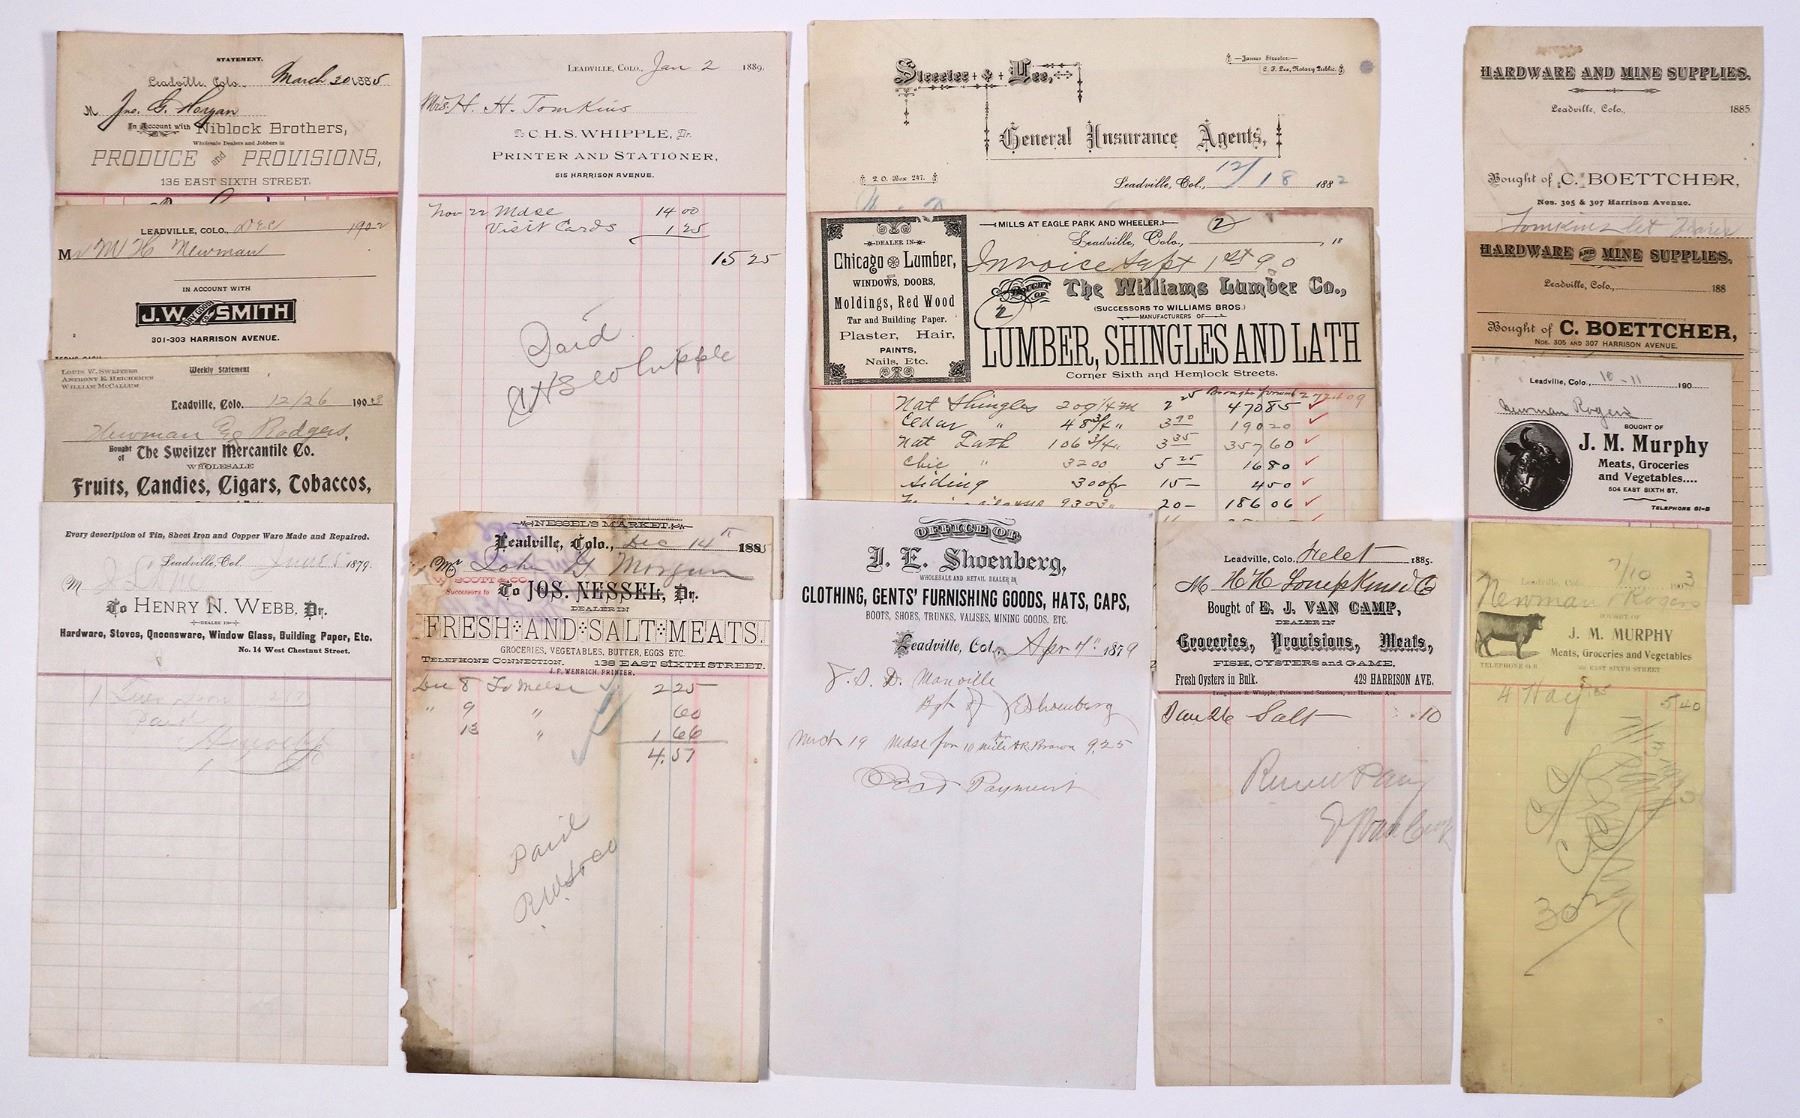 STATEMENT.
Leadville, Colo., March 30 1885
M Jno. G. Morgan
In Account with Niblock Brothers,
Wholesale Dealers and Jobbers in
PRODUCE and PROVISIONS,
136 EAST SIXTH STREET.
LEADVILLE, COLO., Dec 1902
Mr M H Newman
IN ACCOUNT WITH
J.W. SMITH
DRY GOODS CO
301-303 HARRISON AVENUE.
TERMS CASH
LOUIS W. SWEITZER
ANTHONY E. HEICHEMER
WILLIAM McCALLUM
Weekly Statement
Leadville, Colo. 12/26 1903
Newman & Rodgers.
Bought of The Sweitzer Mercantile Co.
WHOLESALE
Fruits, Candies, Cigars, Tobaccos,
Every description of Tin, Sheet Iron and Copper Ware Made and Repaired.
Leadville, Col. 1879.
M
To HENRY N. WEBB, Dr.
DEALER IN
Hardware, Stoves, Queensware, Window Glass, Building Paper, Etc.
No. 14 West Chestnut Street.
1
Paid
LEADVILLE, COLO., Jan 2 1889.
Mrs. H. H. Tomkins
To C.H.S. WHIPPLE, Dr.
PRINTER AND STATIONER,
515 HARRISON AVENUE.
Nov 22 Mdse 14 00
Visit Cards 1 25
15 25
Paid
CHS Whipple
NESSEL'S MARKET.
Leadville, Colo., Dec 14th 1885
Mr John G Morgan
SCOTT & CO
Successors to To JOS. NESSEL, Dr.
DEALER IN
FRESH AND SALT MEATS.
GROCERIES, VEGETABLES, BUTTER, EGGS ETC.
TELEPHONE CONNECTION. 138 EAST SIXTH STREET.
J. F. WENRICH, PRINTER.
Dec 8 To Mdse 2 25
" 9 " 60
13 " 1 66
4.51
Paid
Steeler & Lee,
James Steeler
C. F. Lee, Notary Public.
General Insurance Agents,
P. O. Box 247.
Leadville, Col., 12/18 1882
MILLS AT EAGLE PARK AND WHEELER.
2
Leadville, Colo., 18
Invoice Sept 1st 90
DEALER IN
Chicago Lumber,
WINDOWS, DOORS,
Moldings, Red Wood
Tar and Building Paper.
Plaster, Hair,
PAINTS,
Nails, Etc.
BOUGHT OF
2
The Williams Lumber Co.,
(SUCCESSORS TO WILLIAMS BROS.)
MANUFACTURERS OF
LUMBER, SHINGLES AND LATH
Corner Sixth and Hemlock Streets.
Brought forward
Nat Shingles 209 1/4 m 2 25 470 85
Cedar " 48 3/4 " 3 90 190 20
Nat Lath 106 3/4 " 3 35 357 60
Chic " 3200 5 25 16 80
Siding 300 ft 15— 4 50
9303 20— 186 06
OFFICE OF
J. E. Shoenberg,
WHOLESALE AND RETAIL DEALER IN
CLOTHING, GENTS' FURNISHING GOODS, HATS, CAPS,
BOOTS, SHOES, TRUNKS, VALISES, MINING GOODS, ETC.
Leadville, Col., Apr 7th 1879
Manville
Bgt of J E Shoenberg
March 19 Mdse for 9.25
Payment
Leadville, Colo. 1885.
M H H Tompkins & Co
Bought of E. J. VAN CAMP,
DEALER IN
Groceries, Provisions, Meats,
FISH, OYSTERS and GAME.
Fresh Oysters in Bulk. 429 HARRISON AVE.
Longshore & Whipple, Printers and Stationers, 517 Harrison Ave.
Jan 26 Salt .10
HARDWARE AND MINE SUPPLIES.
Leadville, Colo., 1885
Bought of C. BOETTCHER,
Nos. 305 & 307 Harrison Avenue.
HARDWARE AND MINE SUPPLIES.
Leadville, Colo., 188
Bought of C. BOETTCHER,
Nos. 305 AND 307 HARRISON AVENUE.
Leadville, Colo., 10-11 190
Newman Rogers
BOUGHT OF
J. M. Murphy
Meats, Groceries
and Vegetables....
504 EAST SIXTH ST.
TELEPHONE 61-B
Leadville, Colo. 7/10 1903
Newman & Rogers
BOUGHT OF
J. M. MURPHY
Meats, Groceries and Vegetables
EAST SIXTH STREET
TELEPHONE 61-B
4 Hay 5 40
302